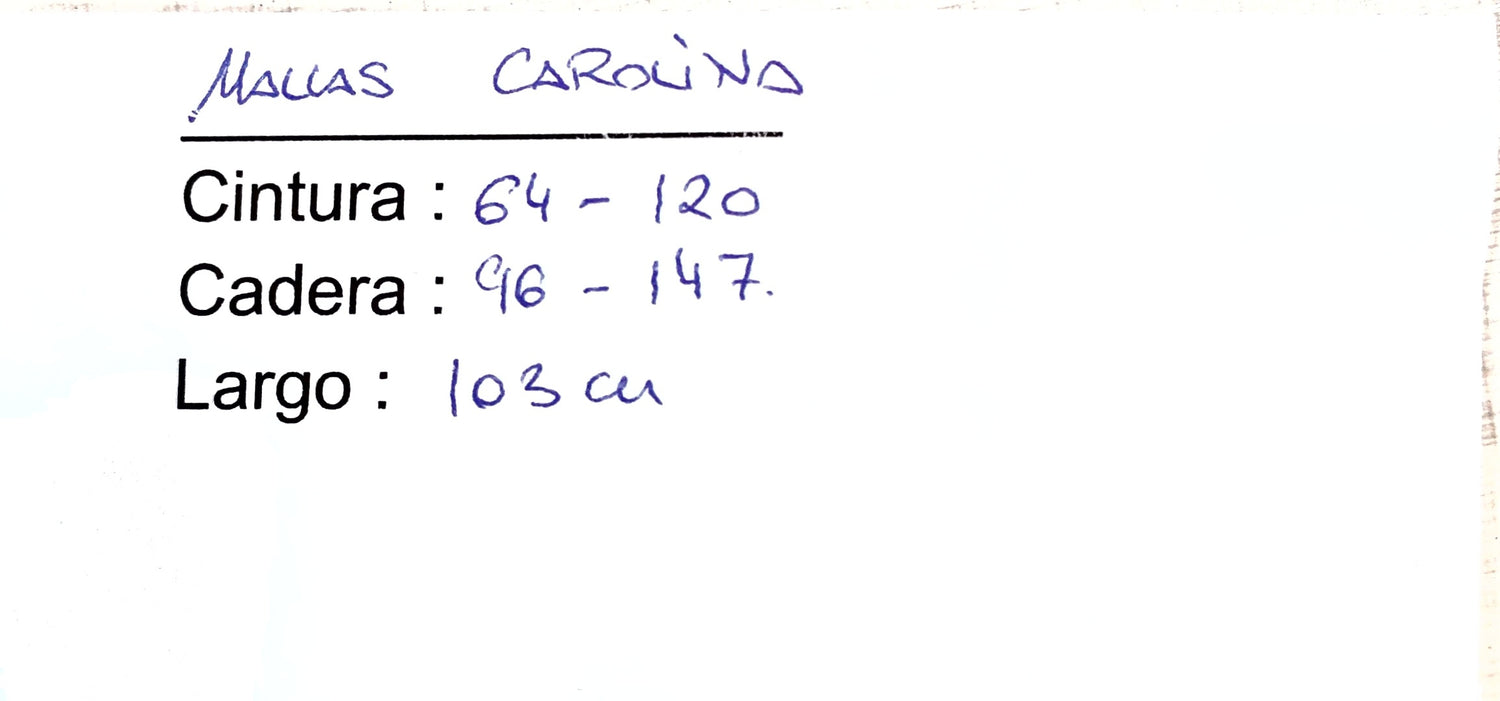 MALLAS CAROLINA
Cintura : 64 - 120
Cadera : 96 - 147.
Largo : 103 cm